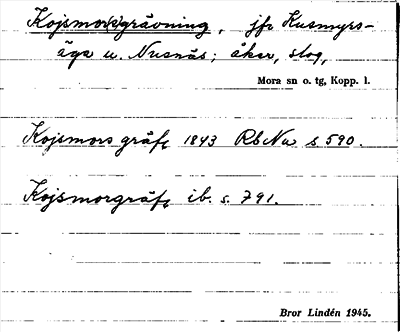 Kojsmor(s)grävning, jfr Kusmyrs-
äga u. Nusnäs; åker, slog,
Mora sn o. tg, Kopp. l.
Kojsmors gräfg 1843 RbNu s 590.
Kojsmorgräfg ib. s. 791.
Bror Lindén 1945.